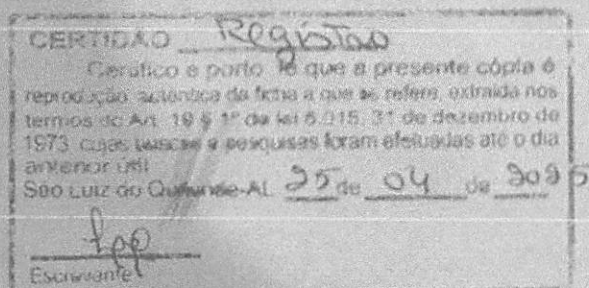 CERTIDÃO Registro
Certifico e porto fé que a presente cópia é
reprodução autêntica da ficha a que se refere, extraída nos
termos do Art. 19 § 1º da lei 6.015, 31 de dezembro de
1973 cujas buscas e pesquisas foram efetuadas até o dia
anterior útil
São Luiz do Quitunde-AL 25 de 04 de 2025
Escrevente